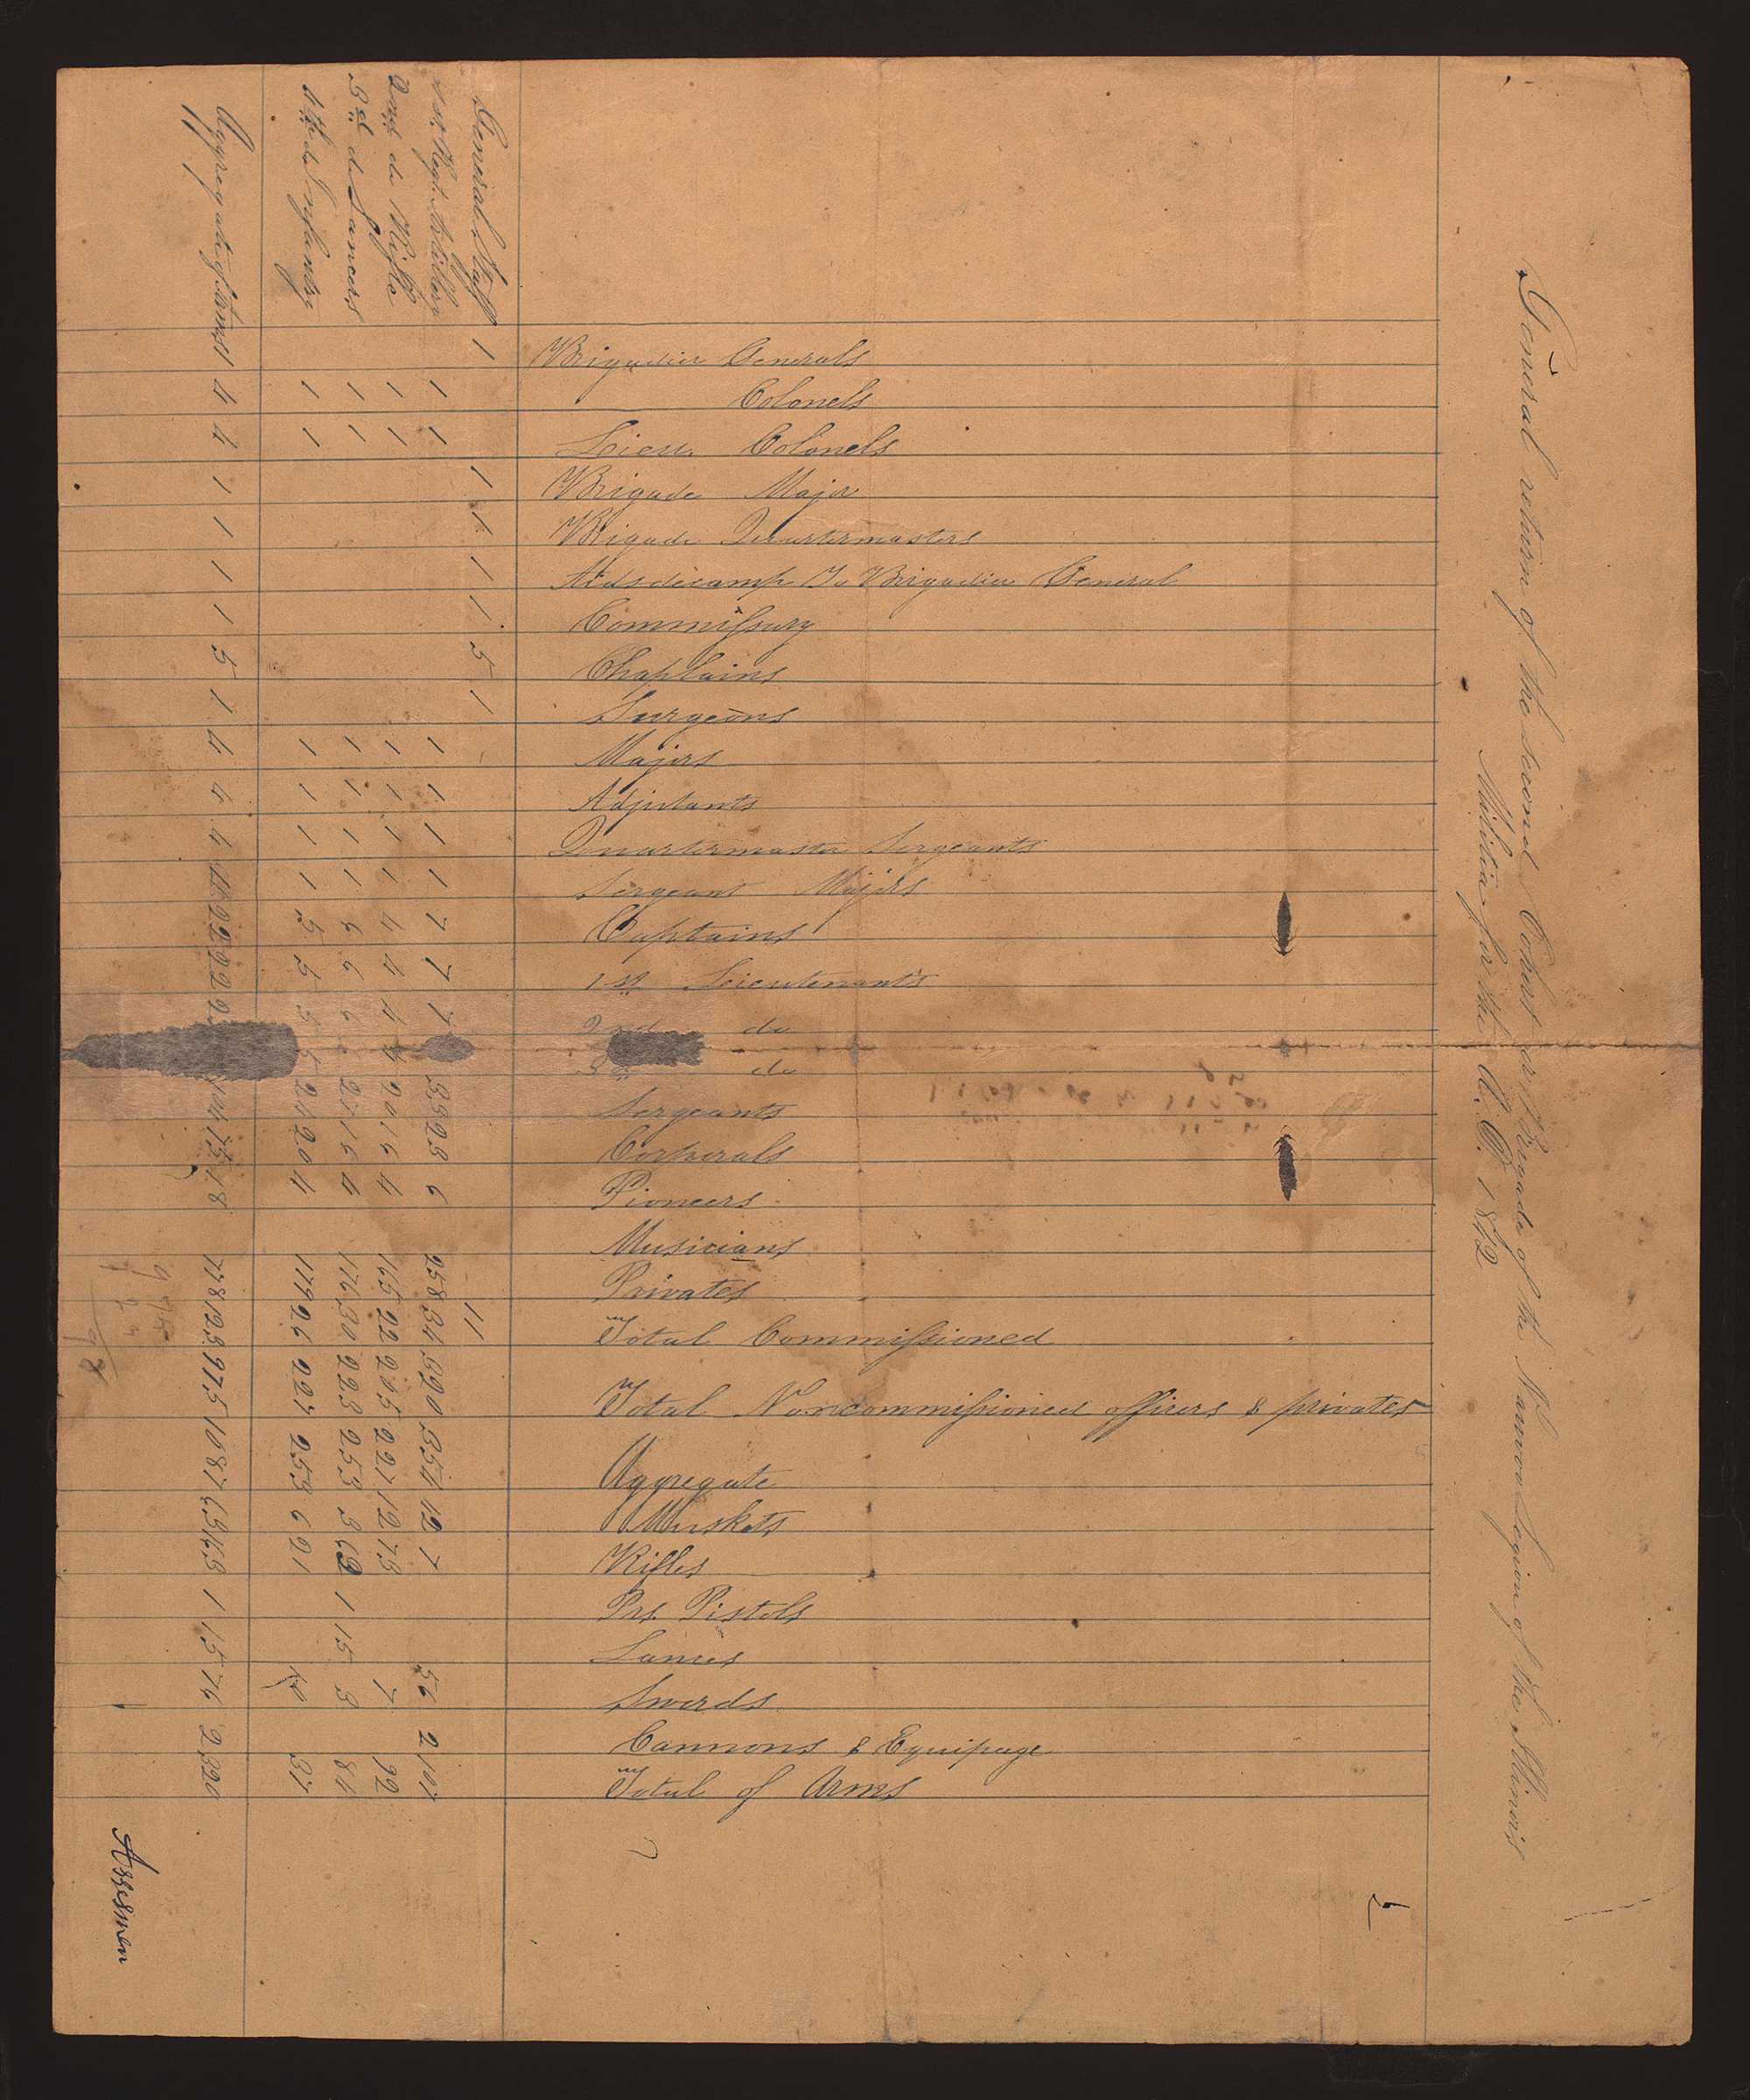 General return of the second Cohort or Brigade of the Nauvoo Legion of the Illinois
Militia for the A.D. 1842
Brigadier Generals
Colonels
Lieu. Colonels
Brigade Major
Brigade Quartermasters
Aidsdecamp To Brigadier General
Commissary
Chaplains
Surgeons
Majors
Adjutants
Quartermaster Sergeants
Sergeant Majors
Captains
1st Lieutenants
2nd do
3d do
Sergeants
Corporals
Pioneers
Musicians
Privates
Total Commissioned
Total Noncommissioned officers & privates
Aggregate
Muskets
Rifles
Prs. Pistols
Lances
Swords
Cannons & Equipage
Total of Arms
General Staff 1 1 1 1 1 5 1 11
1st Regt. Artillery 1 1 1 1 1 1 7 7 7 33 23 6 258 34 320 354 42 7 56 2 107
2nd do Rifle 1 1 1 1 1 1 4 4 4 4 20 16 4 165 22 205 227 12 73 7 92
3d do Lancers 1 1 1 1 1 1 6 6 6 27 16 4 176 30 223 253 3 62 1 15 3 84
4th do Infantry 1 1 1 1 1 1 5 5 5 5 24 20 4 179 26 227 253 6 21 10 37
Aggregate of Items 1 4 4 1 1 1 1 5 1 4 4 4 4 22 22 22 104 75 18 778 123 975 1087 63 163 1 15 76 2 320
Assesmen